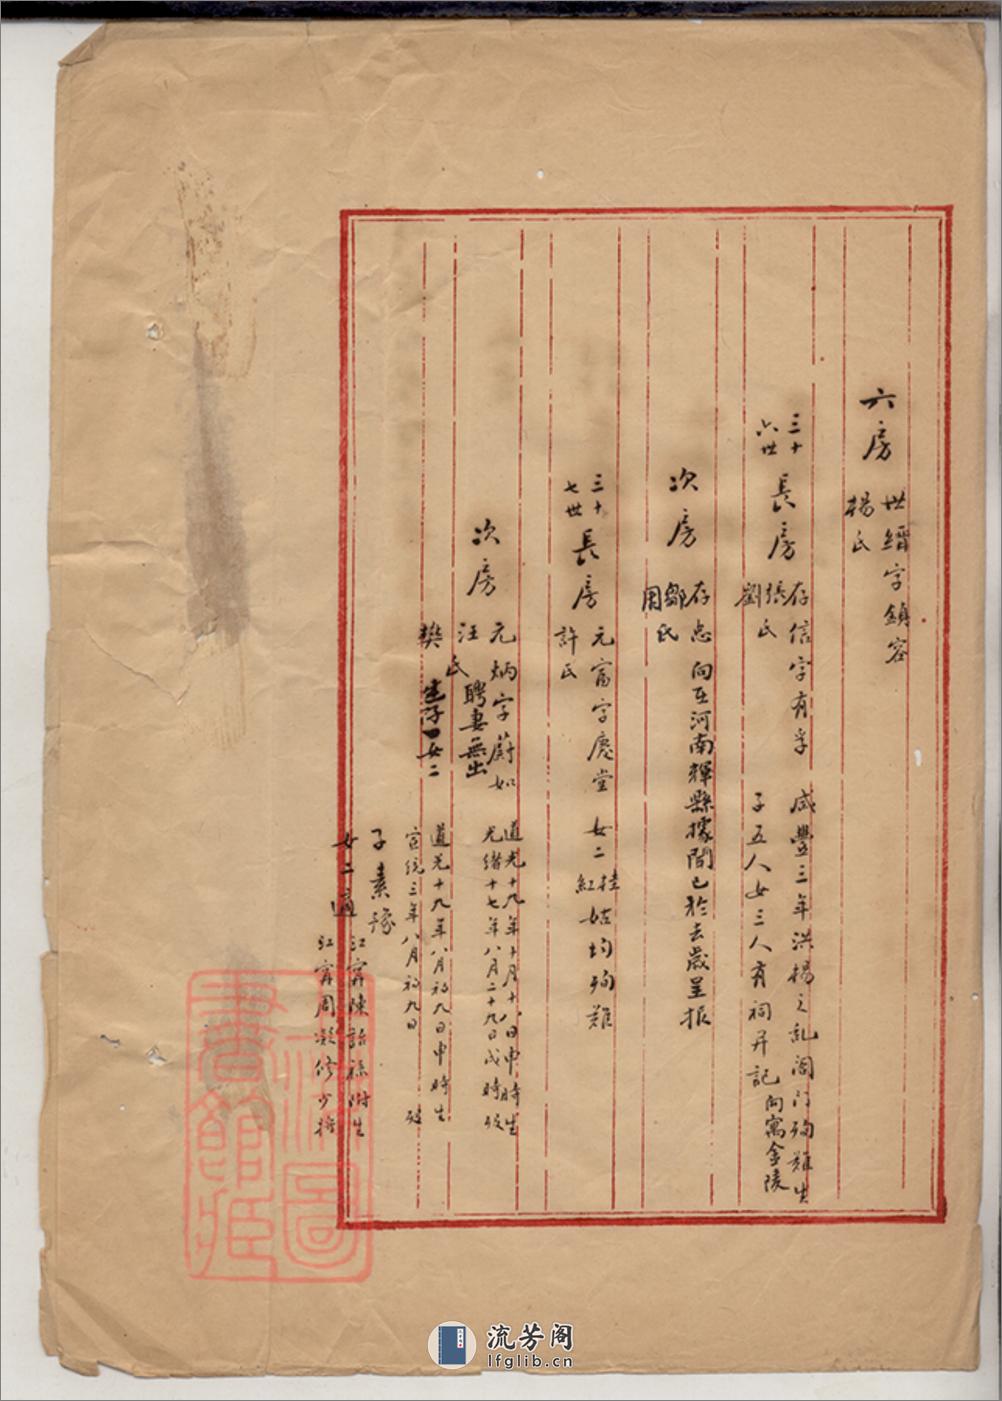 六房
世縉字鎮容
楊氏
三十六世
長房
存信字有孚 咸豐三年洪楊之乱闔门殉難生
張氏 子五人女三人有祠并記向寓金陵
劉
次房
存忠 向在河南輝縣據聞已於去歲呈报
鄒氏
周
三十七世
長房
元富字慶堂 女二桂姑均殉難
紅
許氏
次房
元炳字蔚如 道光十九年十月十八日申時生
汪氏 聘妻無出 光緒十七年八月二十九日戌時歿
樊 生子一女二 道光十九年八月初九日申時生
宣统三年八月初九日 歿
子素豫
女二適 江寧陳詒祿附生
江寧周凝修少
圖書館
流芳阁
lfglib.cn